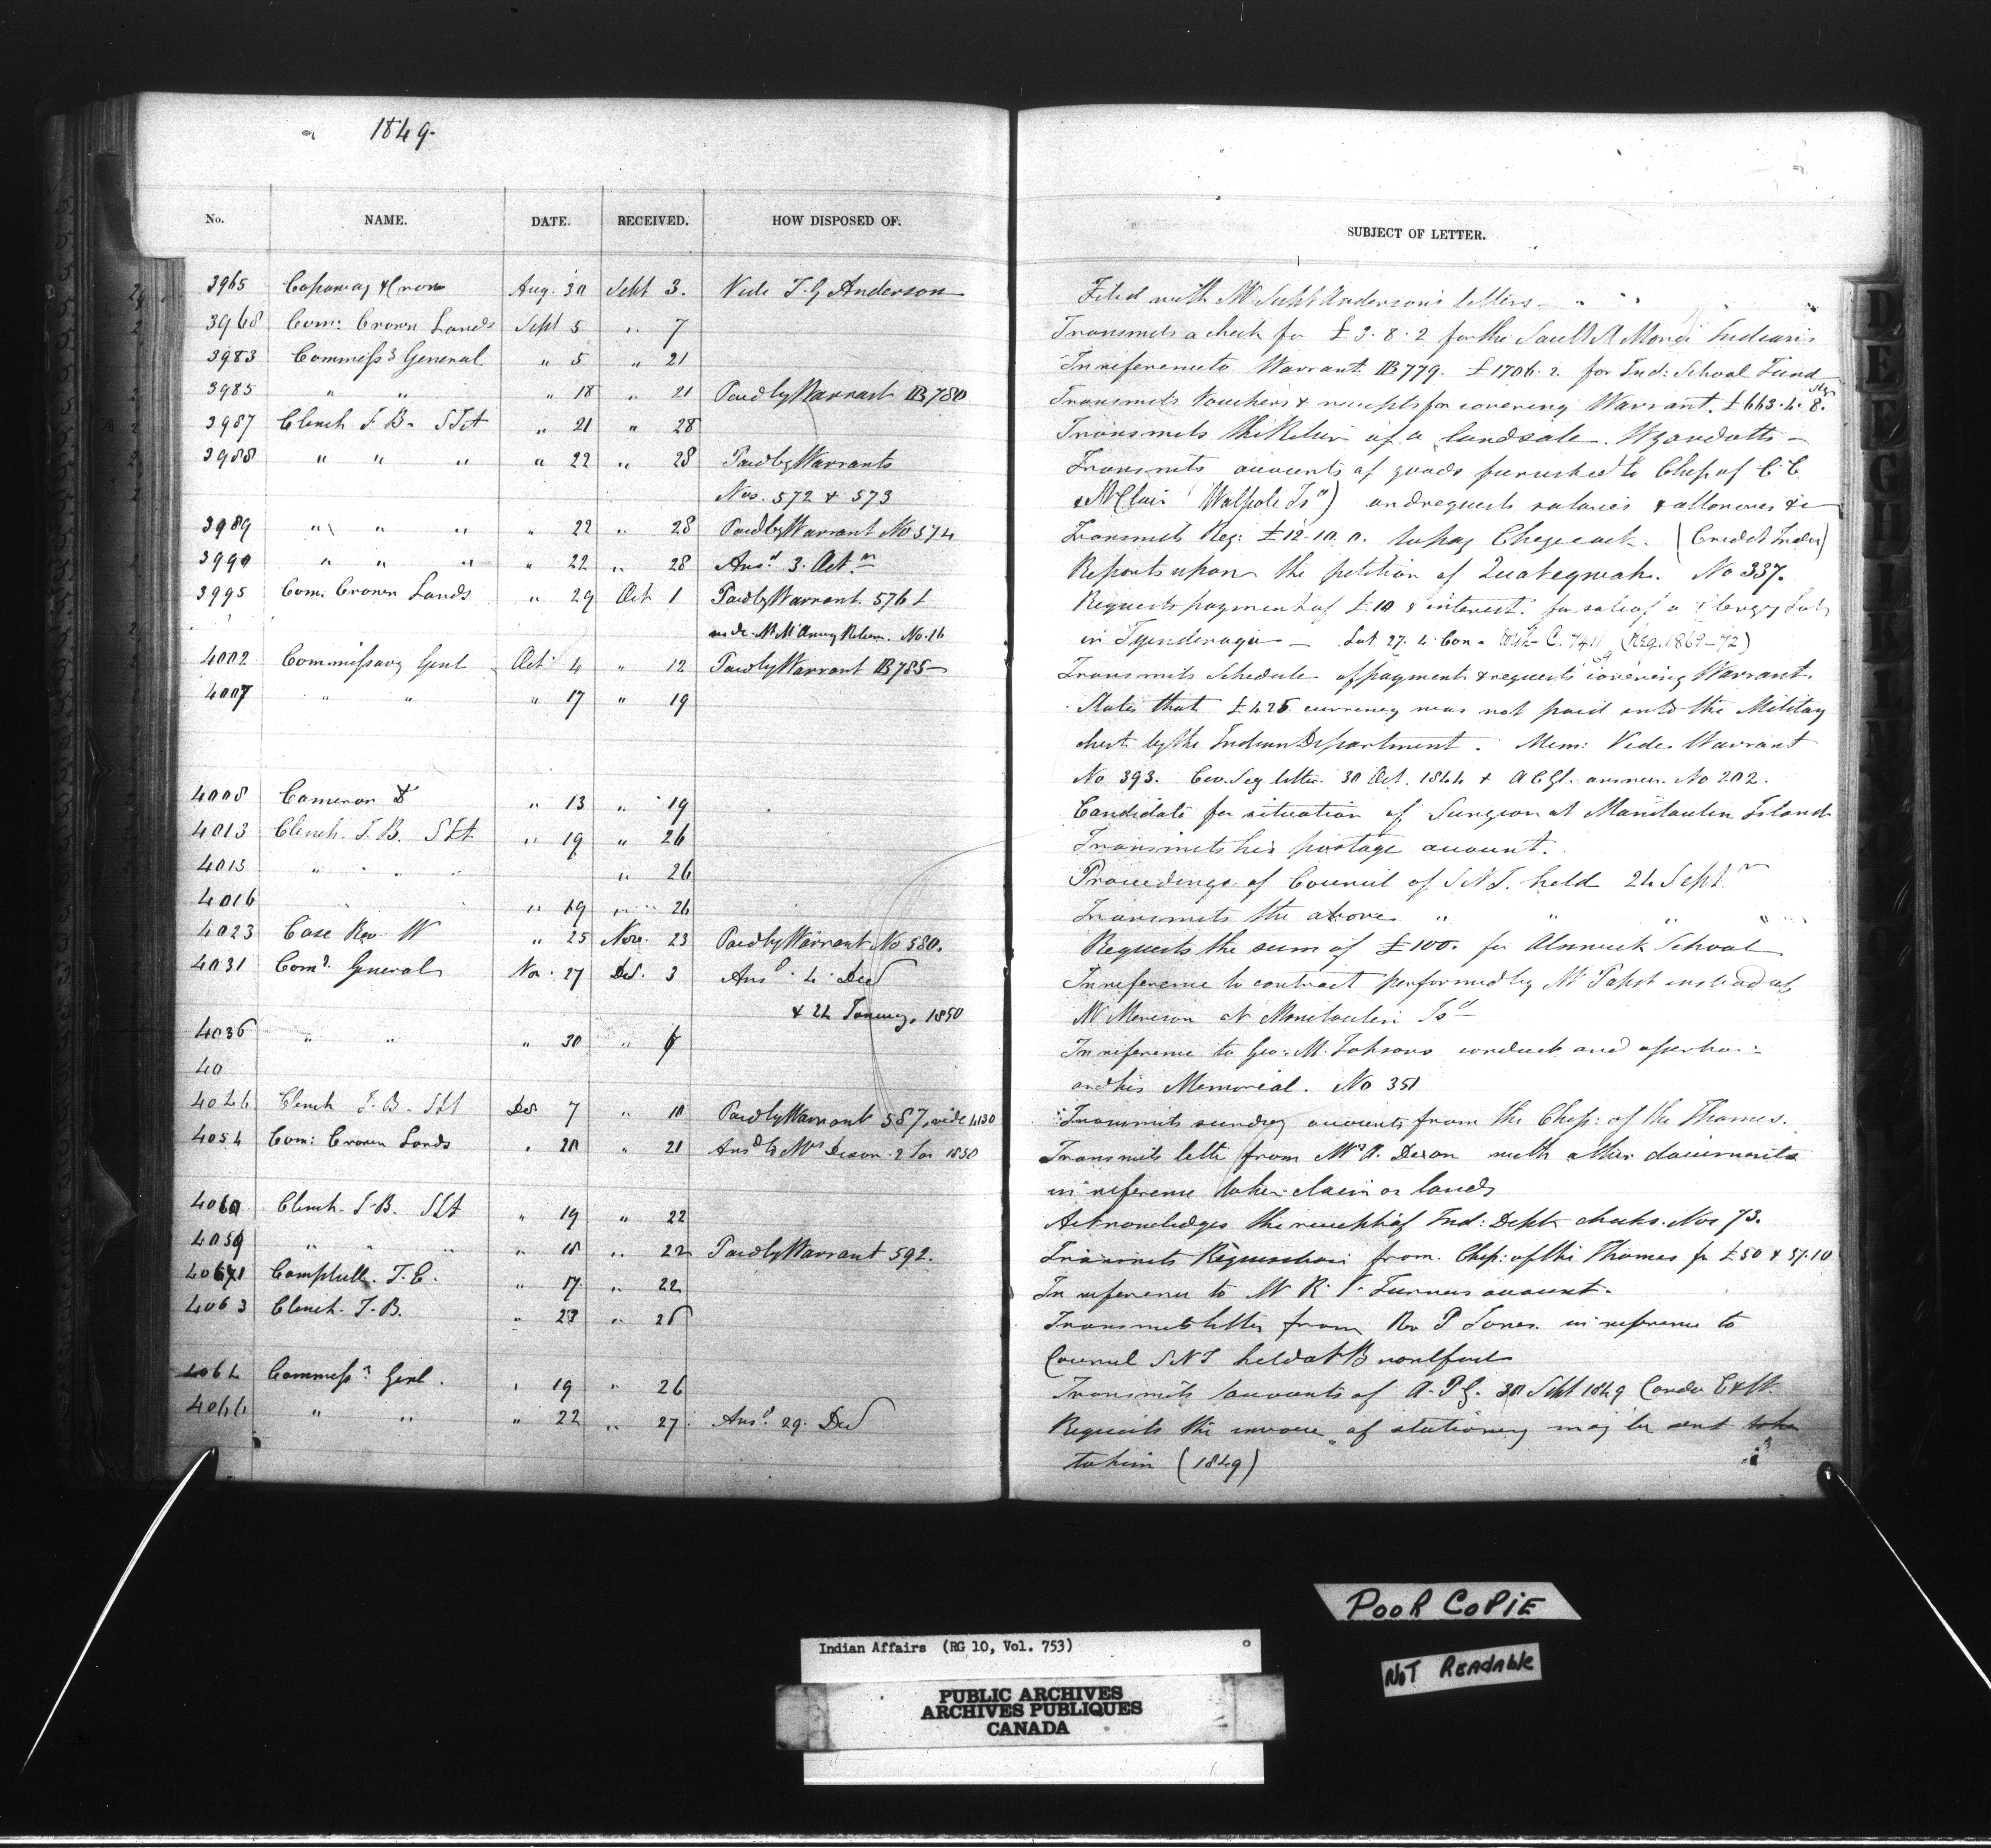 1849.
No. NAME. DATE. RECEIVED. HOW DISPOSED OF. SUBJECT OF LETTER.
3965 Aug. 30 Sept 3. Vide T. G. Anderson Filed with Mr Supt Anderson's letters
3968 Com: Crown Lands Sept 5 " 7 Transmits a check for £3.8.2 for the Sault St Indians
3983 Commissy General " 5 " 21 In reference to Warrant B 779. £1706.2. for Ind: School Fund
3985 " " " 18 " 21 Paid by Warrant B 780 Transmits Vouchers & receipts for covering Warrant. £663.4.8. Stg
3987 Clench J. B. " 21 " 28 Transmits the Return of a land sale. Wyandotts
3988 " " " " 22 " 28 Paid by Warrants Transmits accounts of goods furnished to Chip. of
Nos. 572 & 573 St Clair (Walpole Isd) and requests salaries & allowances &c
3989 " " " " 22 " 28 Paid by Warrant No 574 Transmits Req: £12.10.0. to pay (Credit Indns)
3990 " " " " 22 " 28 Ansd 3. Octr Reports upon the petition of No 337.
3995 Com. Crown Lands " 29 Oct 1 Paid by Warrant 576 Requests payment of £10 & interest. for sale of a Clergy Lot
No. 16 in Tyendenaga — Lot 27. 4 Con. C. 741 (Reg. 1869-72)
4002 Commissary Genl Oct 4 " 12 Paid by Warrant B 785 Transmits Schedule of payments & requests covering Warrant.
4007 " " " 17 " 19 States that £425 currency was not paid into the Military
chest by the Indian Department. Mem: Vide Warrant
No 393. Civ. Secy letter 30 Oct. 1844 & answer. No 202.
4008 Cameron " 13 " 19 Candidate for situation of Surgeon at Manitoulin Island
4013 Clench J. B. " 19 " 26 Transmits his postage account.
4015 " " " " 26 Proceedings of Council of S.N.I. held 24 Septr
4016 " " 19 " 26 Transmits the above " " " "
4023 Case Rev. W " 25 Nov. 23 Paid by Warrant No 580. Requests the sum of £100. for Alnwick School
4031 Comy General Nov. 27 Dec. 3 Ansd 4 Dec In reference to contract performed by Mr instead of
& 22 January, 1850 Mr at Manitoulin Isd
4036 " " " 30 " 6 In reference to Geo: M. conduct and
40 and his Memorial. No 351
Clench J. B. Dec 7 " 10 Paid by Warrant 587, vide 4130 Transmits sundry accounts from the Chip: of the Thames.
4054 Com: Crown Lands " 20 " 21 Ansd to Mrs 2 Jan 1850 Transmits letter from Mrs with other documents
in reference to her claim on lands
4060 Clench J. B. " 19 " 22 Acknowledges the receipt of Ind: Dept checks. Nos 73.
4059 " " " " 18 " 22 Paid by Warrant 592. Transmits Requisitions from Chip: of the Thames for £50 & 37.10
Campbell. T. E. " 17 " 22 In reference to Mr R. V. Turners account.
4063 Clench. J. B. " 23 " 26 Transmits letter from Rev P Jones in reference to
Council S N I held at Brantford
4064 Commissy Genl. " 19 " 26 Transmits accounts of 30 Sept 1849
4066 " " " 22 " 27 Ansd 29. Dec Requests the invoice of stationery may be sent
to him (1849)
D E
POOR COPIE
NOT READABLE
Indian Affairs (RG 10, Vol. 753)
PUBLIC ARCHIVES
ARCHIVES PUBLIQUES
CANADA